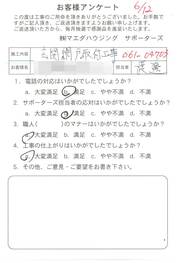 お客様アンケート
6/12
この度は工事のご用命を頂きありがとうございました。お手数で
すがご記入頂き、ご返送頂きますようお願い申し上げます。
ご返送頂いた方から、毎月抽選で感謝品を進呈いたします。
㈱マエダハウジング サポーターズ
施工内容 玄関網戸取付工事
お客様名
担当者
1. 電話の対応はいかがでしたでしょうか？
a.大変満足 b.満足 c.やや不満 d.不満
2. サポーターズ担当者の対応はいかがでしたでしょうか？
a.大変満足 b.満足 c.やや不満 d.不満
3. 職人( )のマナーはいかがでしたでしょうか？
a.大変満足 b.満足 c.やや不満 d.不満
4. 工事の仕上がりはいかがでしたでしょうか？
a.大変満足 b.満足 c.やや不満 d.不満
5. その他、ご意見・ご要望をお聞かせ下さい。